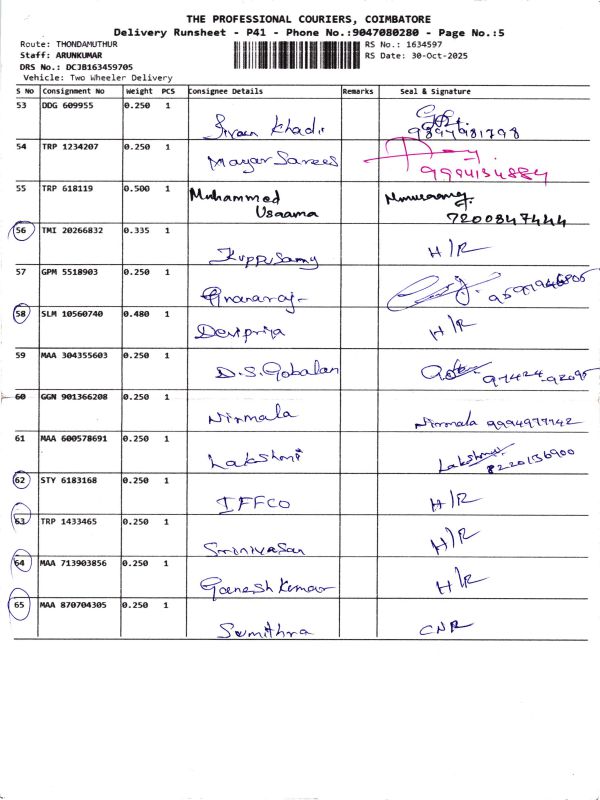 THE PROFESSIONAL COURIERS, COIMBATORE
Delivery Runsheet - P41 - Phone No.:9047080280 - Page No.:5
Route: THONDAMUTHUR RS No.: 1634597
Staff: ARUNKUMAR RS Date: 30-Oct-2025
DRS No.: DCJB163459705
Vehicle: Two Wheeler Delivery
S No Consignment No Weight PCS Consignee Details Remarks Seal & Signature
53 DDG 609955 0.250 1 Khadi 9894981798
54 TRP 1234207 0.250 1 Mayar Sarees 9994134884
55 TRP 618119 0.500 1 Muhammed Usaama
7200347444
56 TMI 20266832 0.335 1 Kuppusamy H/R
57 GPM 5518903 0.250 1 Gnanaraj
58 SLM 10560740 0.480 1 Devipriya H/R
59 MAA 304355603 0.250 1 D.S.Gobalan 97424-92095
60 GGN 901366208 0.250 1 Nirmala Nirmala 9994977742
61 MAA 600578691 0.250 1 Lakshmi Lakshmi
8220136900
62 STY 6183168 0.250 1 IFFCO H/R
63 TRP 1433465 0.250 1 Srinivasan H/R
64 MAA 713903856 0.250 1 Ganesh Kumar H/R
65 MAA 870704305 0.250 1 Sumithra CNR